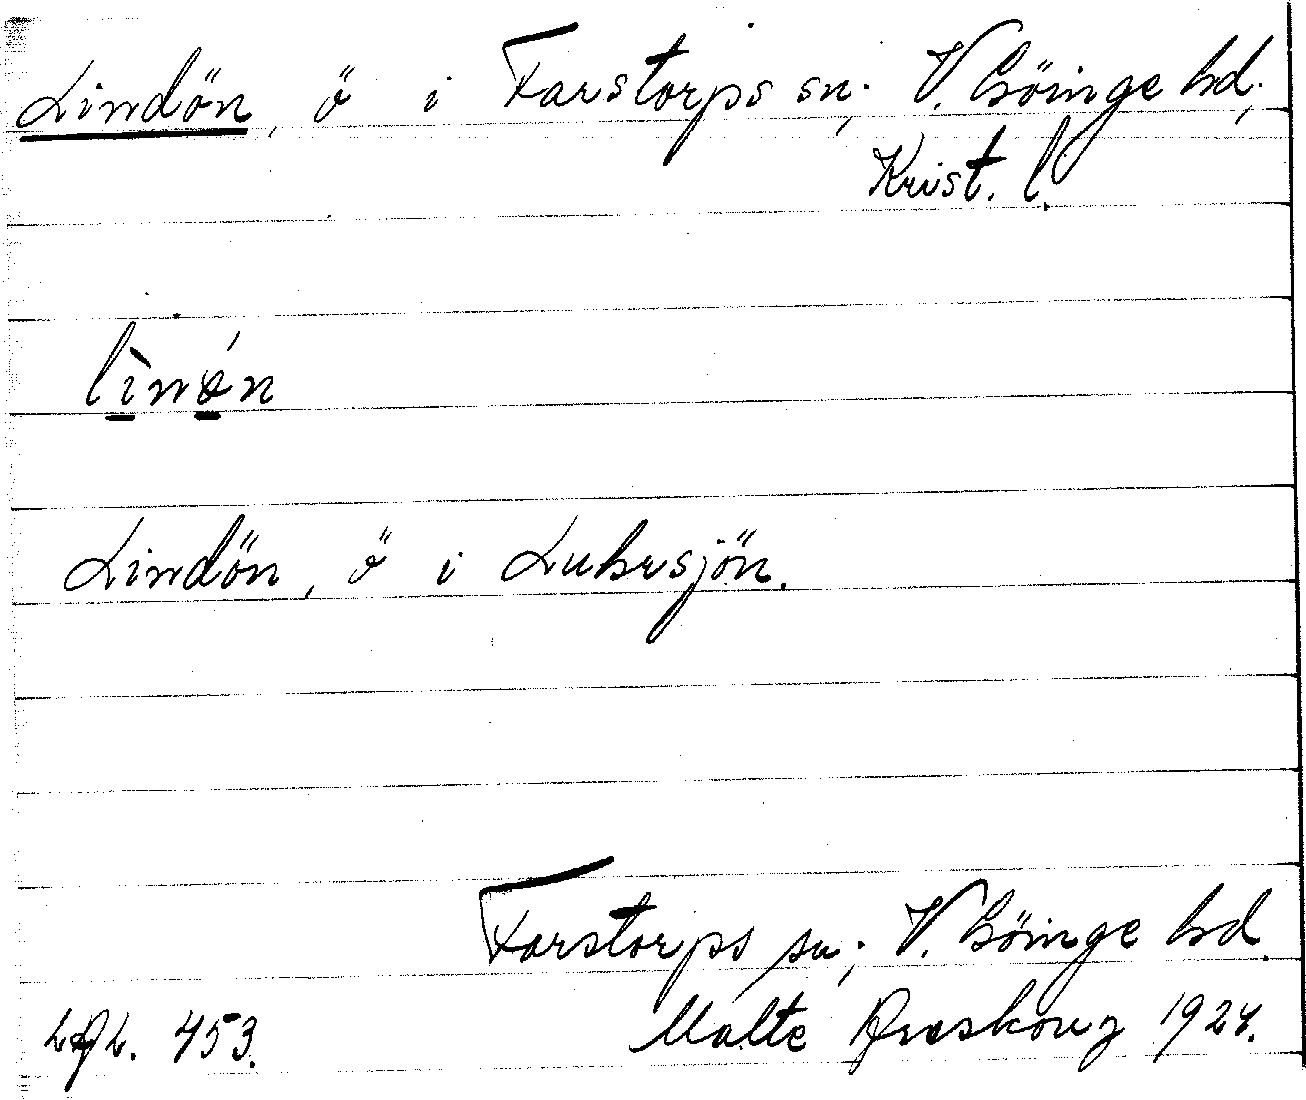 Lindön, ö i Farstorps sn; V. Göinge hd;
Krist. l.
lìnǿn
Lindön, ö i Luhrsjön.
Farstorps sn; V. Göinge hd.
453. Malte Areskoug 1924.